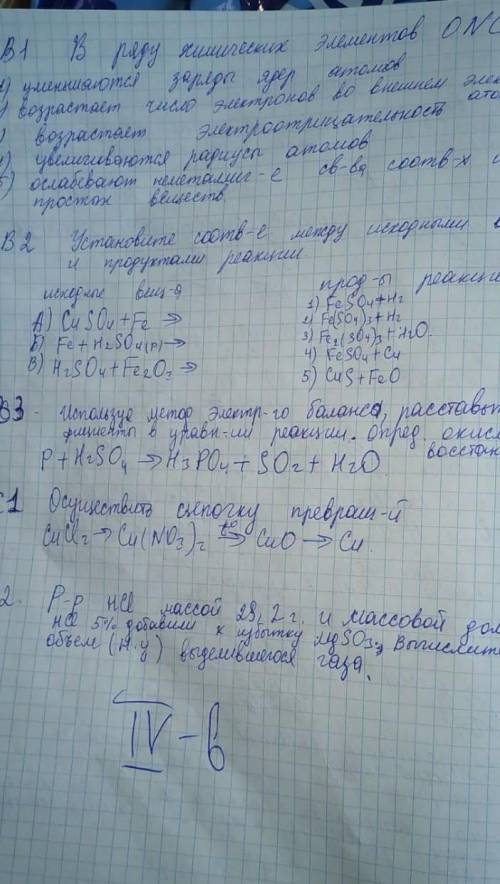 В1 В ряду химических элементов ONC
уменьшаются заряды ядер атомов
возрастает число электронов во внешнем элек
возрастает электроотрицательность ато
увеличиваются радиусы атомов
5) ослабевают неметаллич-е св-ва соотв-х
простых веществ
В2 Установите соотв-е между исходными в
и продуктами реакции
исходные вещ-ва
прод-ы реакции
А) CuSO4 + Fe →
Б) Fe + H2SO4(р) →
В) H2SO4 + Fe2O3 →
1) FeSO4 + H2
2) Fe(SO4)3 + H2
3) Fe2(SO4)3 + H2O
4) FeSO4 + Cu
5) CuS + FeO
В3 Используя метод электр-го баланса, расставьт
фициенты в уравн-ии реакции. Опред. окисл
восстан
P + H2SO4 → H3PO4 + SO2 + H2O
С1 Осуществить цепочку превращ-й
CuCl2 → Cu(NO3)2 t° → CuO → Cu
2. Р-р HCl массой 29,2 г. и массовой дол
HCl 5% добавили к избытку MgSO3. Вычислите
объем (н.у) выделившегося газа.
IV - в